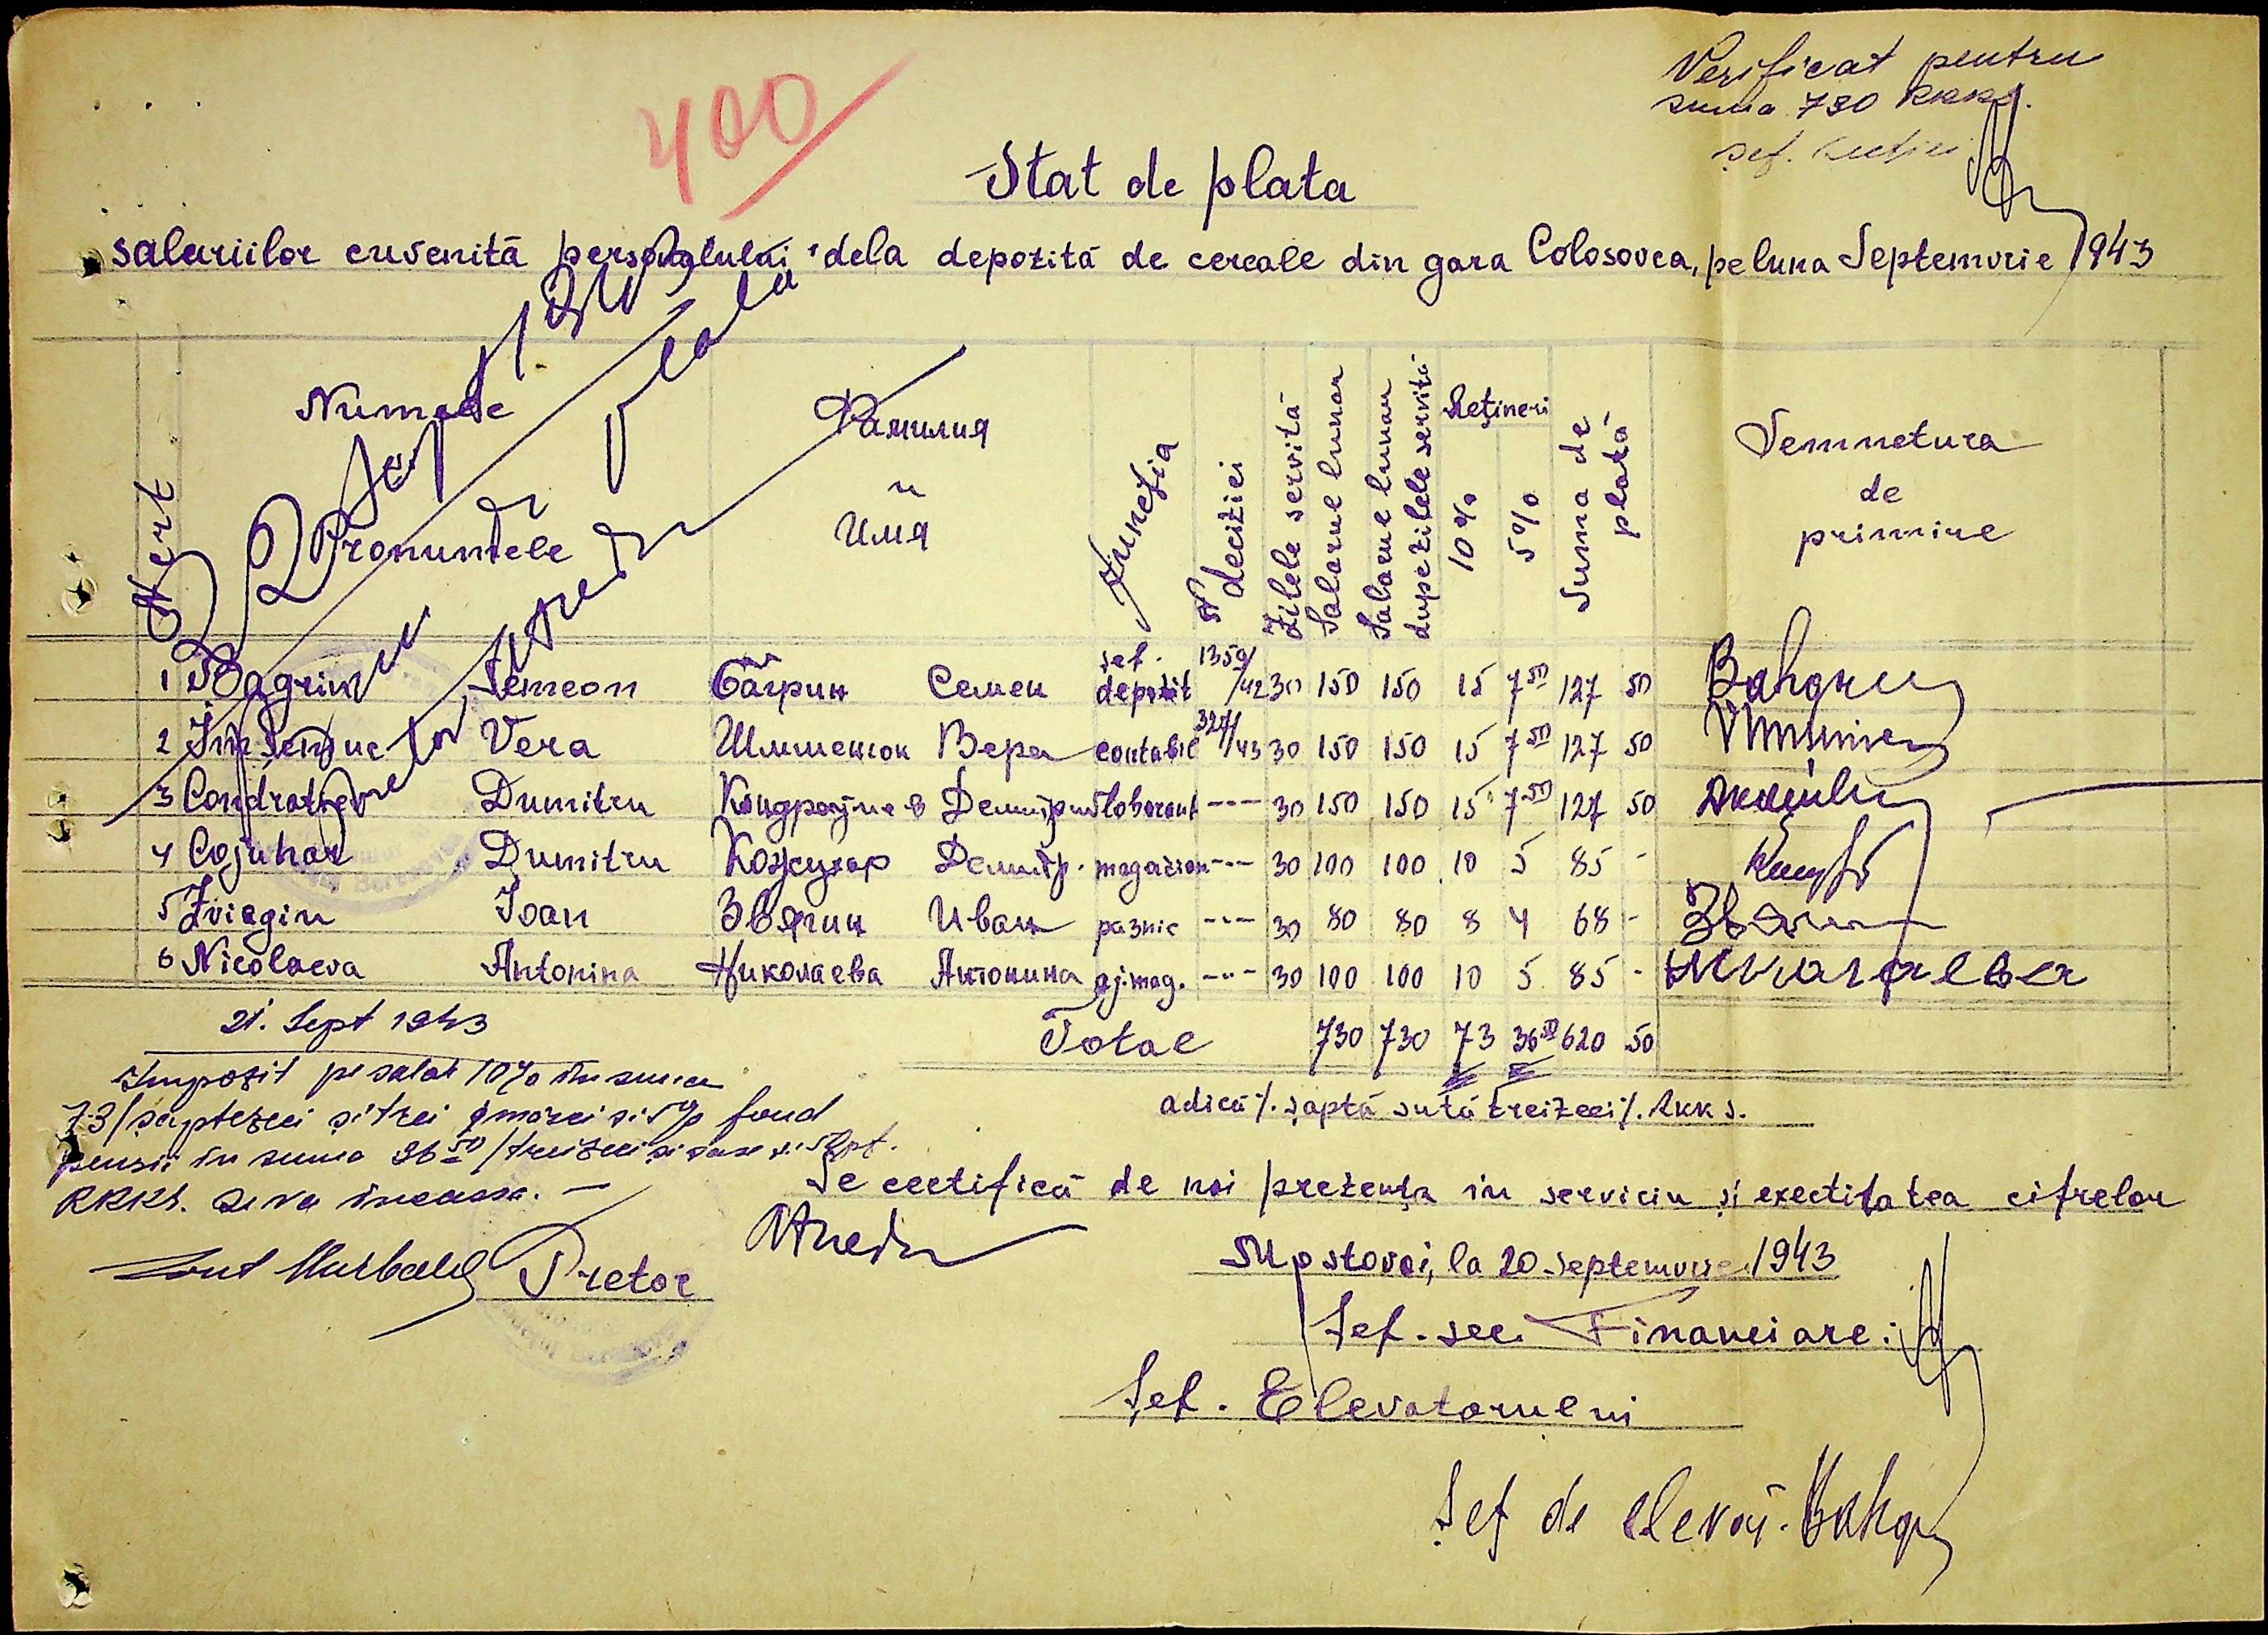 Verificat pentru
suma 730 RKKS.
șef. secției
400
Stat de plata
salariilor cuvenită personalului dela depozită de cereale din gara Colosovca, pe luna Septemvrie 1943
N crt Numele și Pronumele Фамилия и Имя Funcția N deciziei Zilele servită Salarul lunar Salarul lunar dupe zilele servită Rețineri 10% 5% Suma de plată Semnetura de primire
1 Bagrin Semeon Багрин Семен șef. depozit 1359/42 30 150 150 15 7 50 127 50
2 Vera Шимшенюк Вера contabil 327/43 30 150 150 15 7 50 127 50
3 Condratiev Dumitru Кондратьев Демитрий laborant -"- 30 150 150 15 7 50 127 50
4 Cojuhar Dumitru Кожухар Демитр. magazioner -"- 30 100 100 10 5 85 -
5 Zviagin Ioan Звягин Иван paznic -"- 30 80 80 8 4 68 -
6 Nicolaeva Antonina Николаева Антонина aj. mag. -"- 30 100 100 10 5 85 -
Total 730 730 73 36 50 620 50
21. Sept 1943
Impozit pe salar 10% în suma
73/șaptezeci și trei/ mărci și 5% fond
pensii în suma 36 50/treizeci și șase și 50 pf.
RKKS. se va incassa. -
adică %. șaptă sută treizeci %. RKKS.
Se certifică de noi prezența in serviciu și exectitatea cifrelor
Pretor
Mostovoi, la 20 Septemvrie 1943
Șef. sec. Financiare:
Șef. Elevatorului
Șef de elevat.